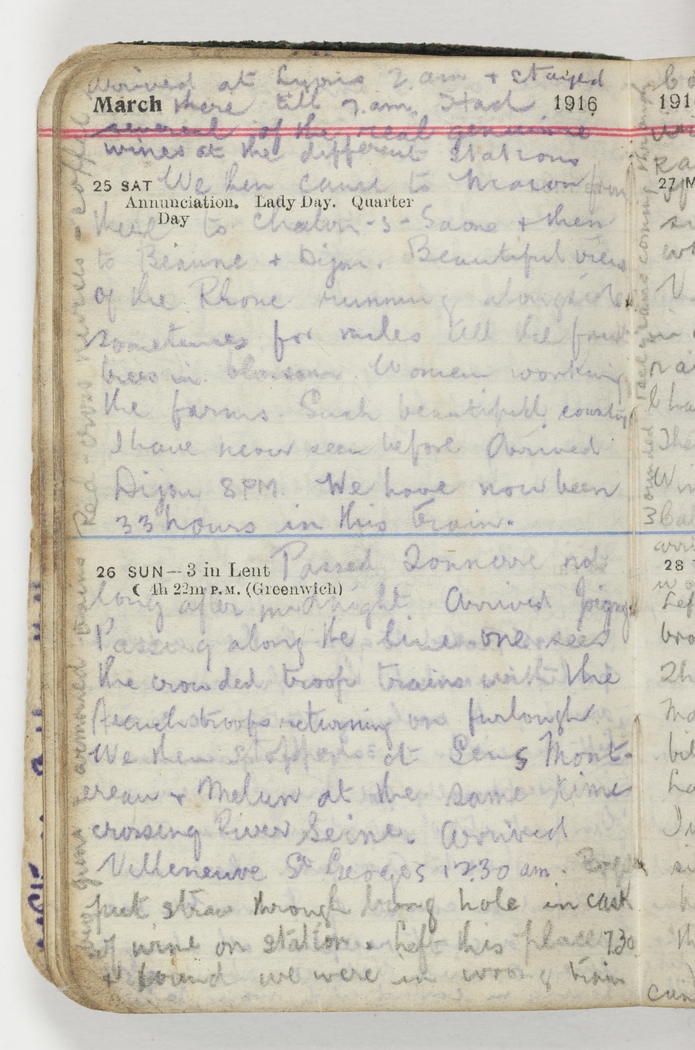 arrived at Lyons 2 am + stayed
March there till 7. am. Had 1916
several of the real genuine
wines at the different stations
25 SAT We then came to Macon from
Annunciation. Lady Day. Quarter
Day
there to Chalon-s-Saone + then
to Beaune + Dijon. Beautiful views
of the Rhone running alongside
sometimes for miles all the fruit
trees in blossom. Women working
the farms. Such beautiful country
I have never seen before Arrived
Dijon 8 PM. We have now been
33 hours in this train.
26 SUN—3 in Lent Passed Tonnerre not
☾ 4h 22m P.M. (Greenwich)
long after midnight Arrived Joigny
Passing along the line one sees
the crowded troop trains with the
French troops returning on furlough
We then stopped at Sens Mont-
ereau + Melun at the same time
crossing River Seine. Arrived
Villeneuve St Georges 12.30 am.
put straw through bung hole in cask
of wine on station. Left this place 7.30
+ found we were in wrong train
Red-cross nurses - coffee
armoured trains
191
27 M
28